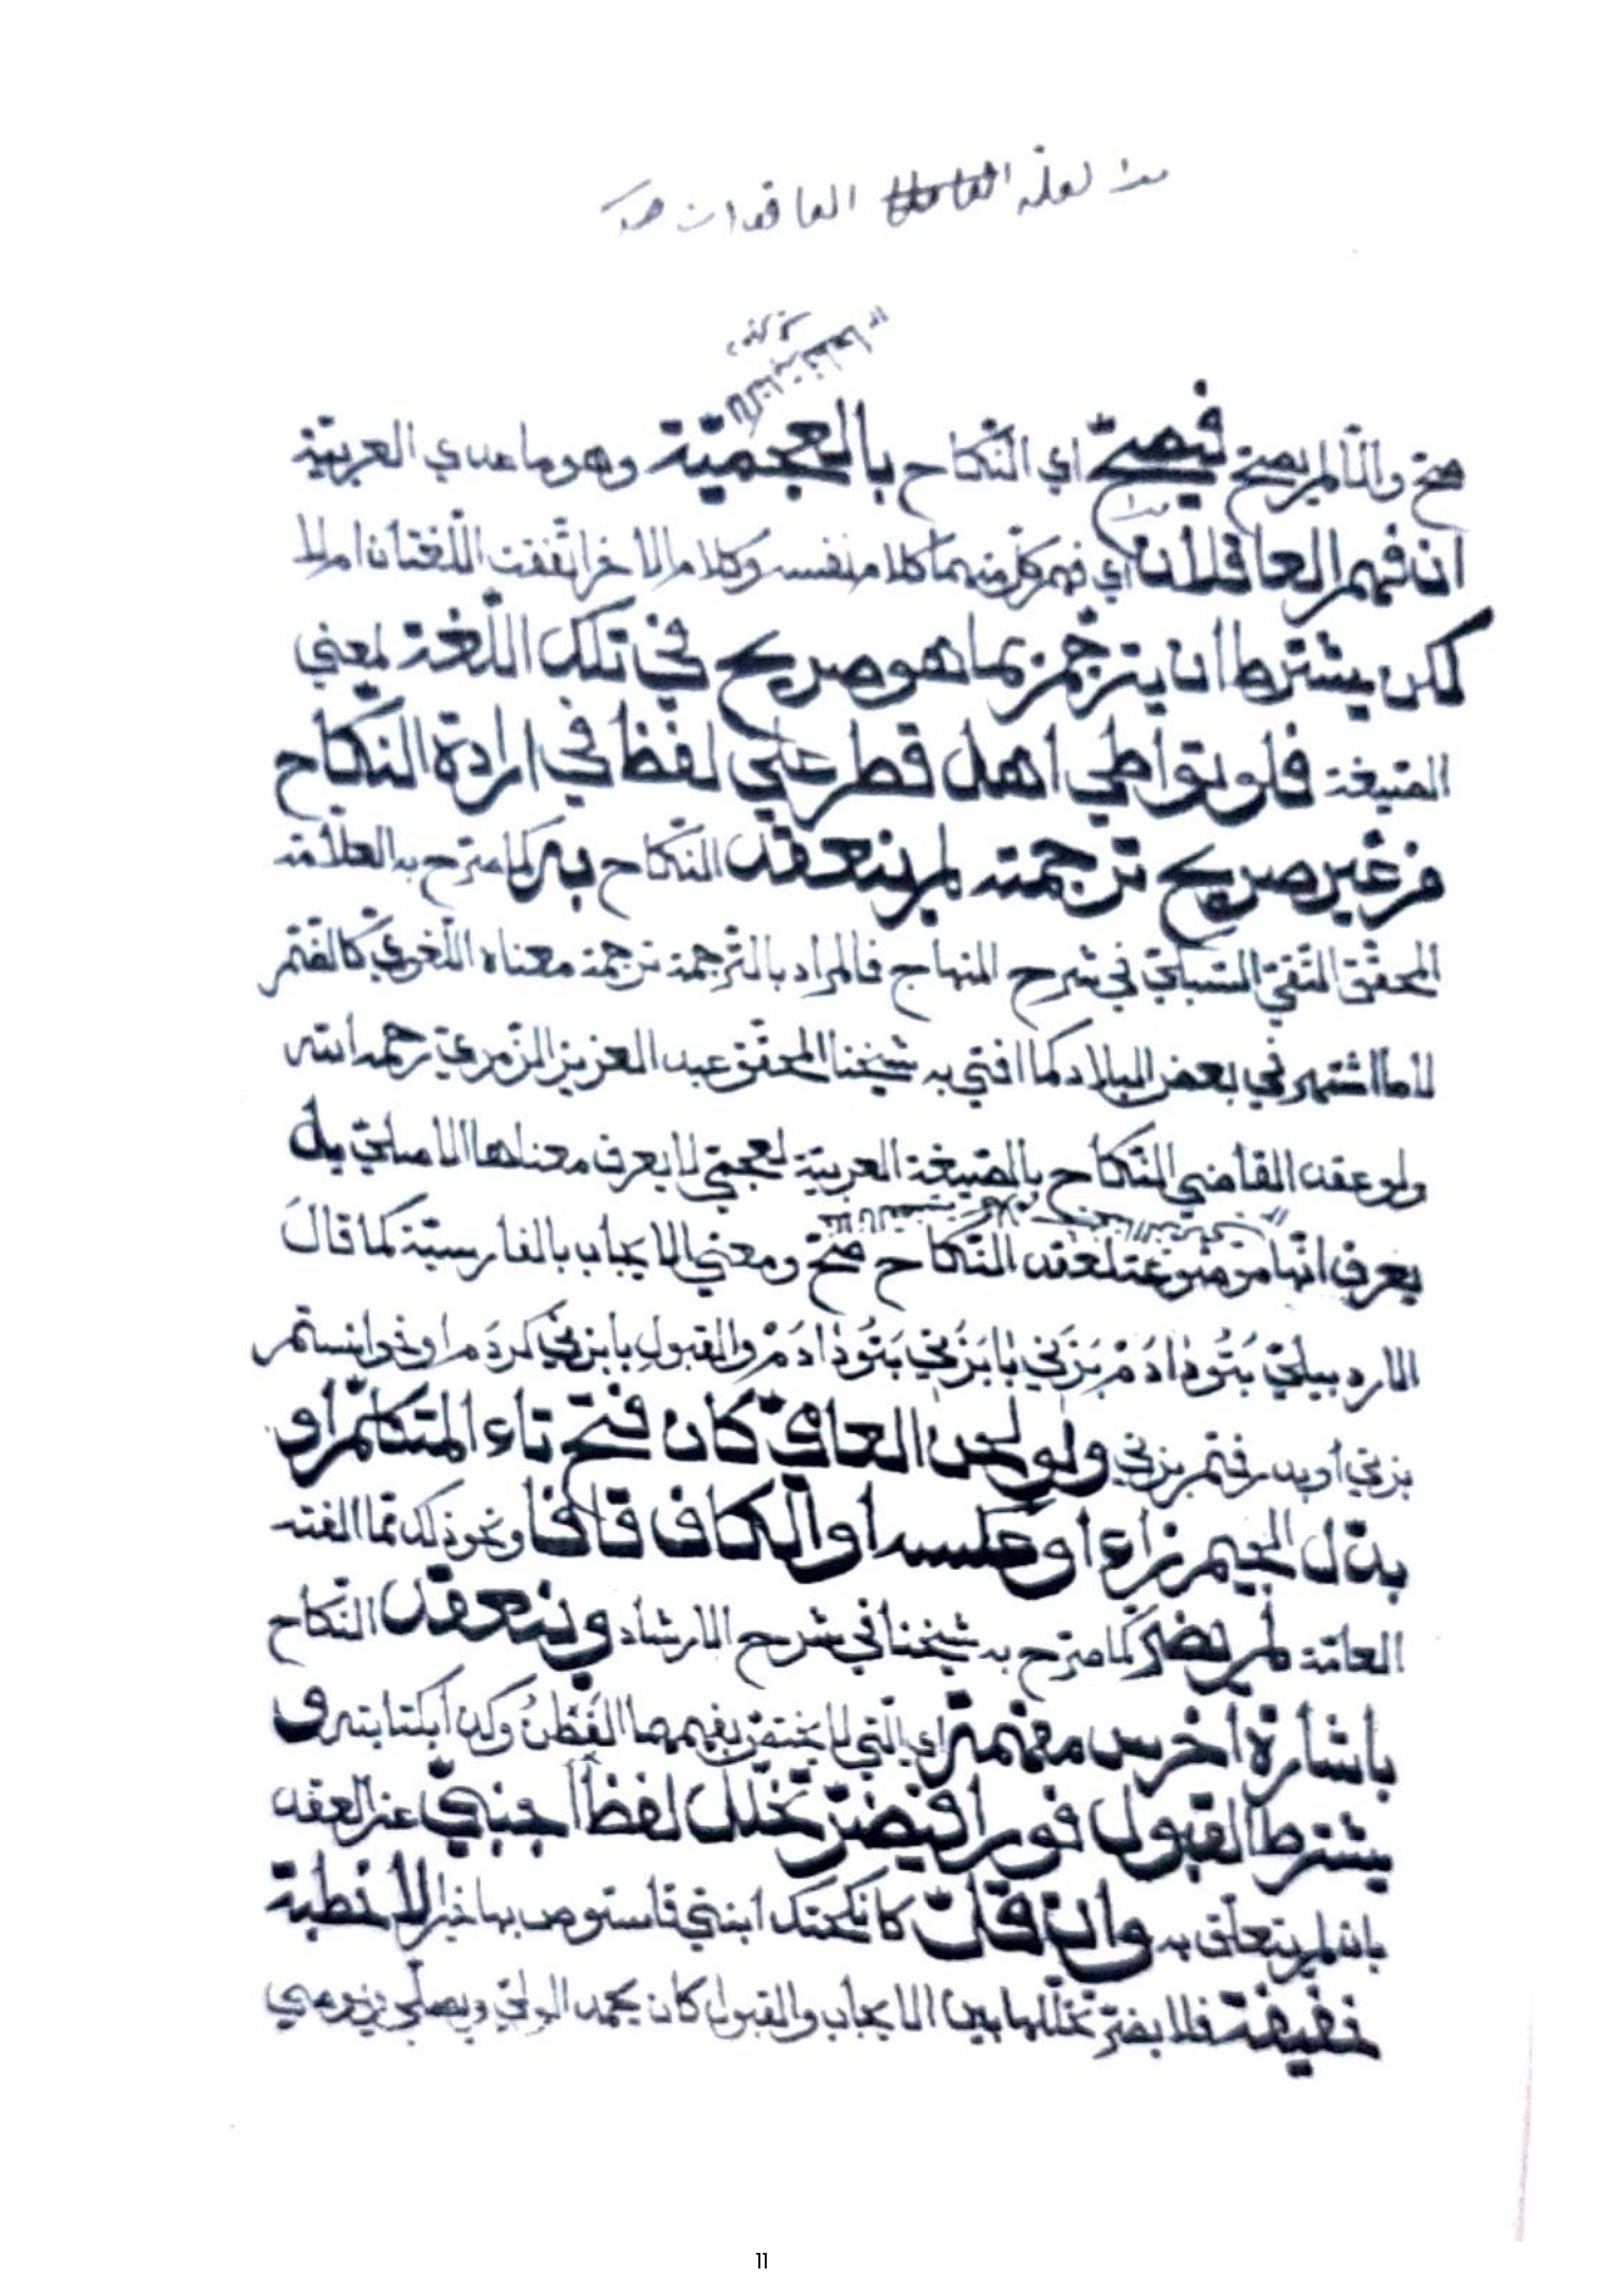 لعله العاقدان
صح والا لم يصح فيصح اي النكاح بالعجمية وهو ما عدي العربية
ان فهم العاقلان اي فهم كل منهما كلام نفسه وكلام الاخر اتفقت اللغتان ام لا
لكن يشترط ان يترجم بما هو صريح في تلك اللغة لمعني
الصيغة فلو تواطي اهل قطر علي لفظ في ارادة النكاح
من غير صريح ترجمته لم ينعقد النكاح به كما صرح به العلامة
المحقق التقي السبكي في شرح المنهاج فالمراد بالترجمة ترجمة معناه اللغوي كالضم
لا ما اشتهر في بعض البلاد كما افتي به شيخنا المحقق عبد العزيز الزمزمي رحمه الله
ولو عقد القاضي النكاح بالصيغة العربية لعجمي لا يعرف معناها الاصلي بل
يعرف انها موضوعة لعقد النكاح صح ومعني الايجاب بالفارسية كما قال
الاردبيلي بَتُو دَادَمْ بَزَني يا بَزَني بَتُو دَادَمْ والقبول بابزني كردم او خواستم
بزني او پذرفتم بزني ولو لحن العاقد كان فتح تاء المتكلم او
بدل الجيم زاء او عكسه او الكاف قافا ونحو ذلك مما الفته
العامة لم يضر كما صرح به شيخنا في شرح الارشاد وينعقد النكاح
باشارة اخرس مفهمة اي التي لا يختص بفهمها الفَطِنُ وكذا بكتابته و
يشترط القبول فورا فيضر تخلل لفظ اجنبي عن العقد
بان لم يتعلق به وان قل كانكحتك ابنتي فاستوص بها خيرا لا خطبة
خفيفة فلا يضر تخللها بين الايجاب والقبول كان يحمد الولي ويصلي ويوصي
11